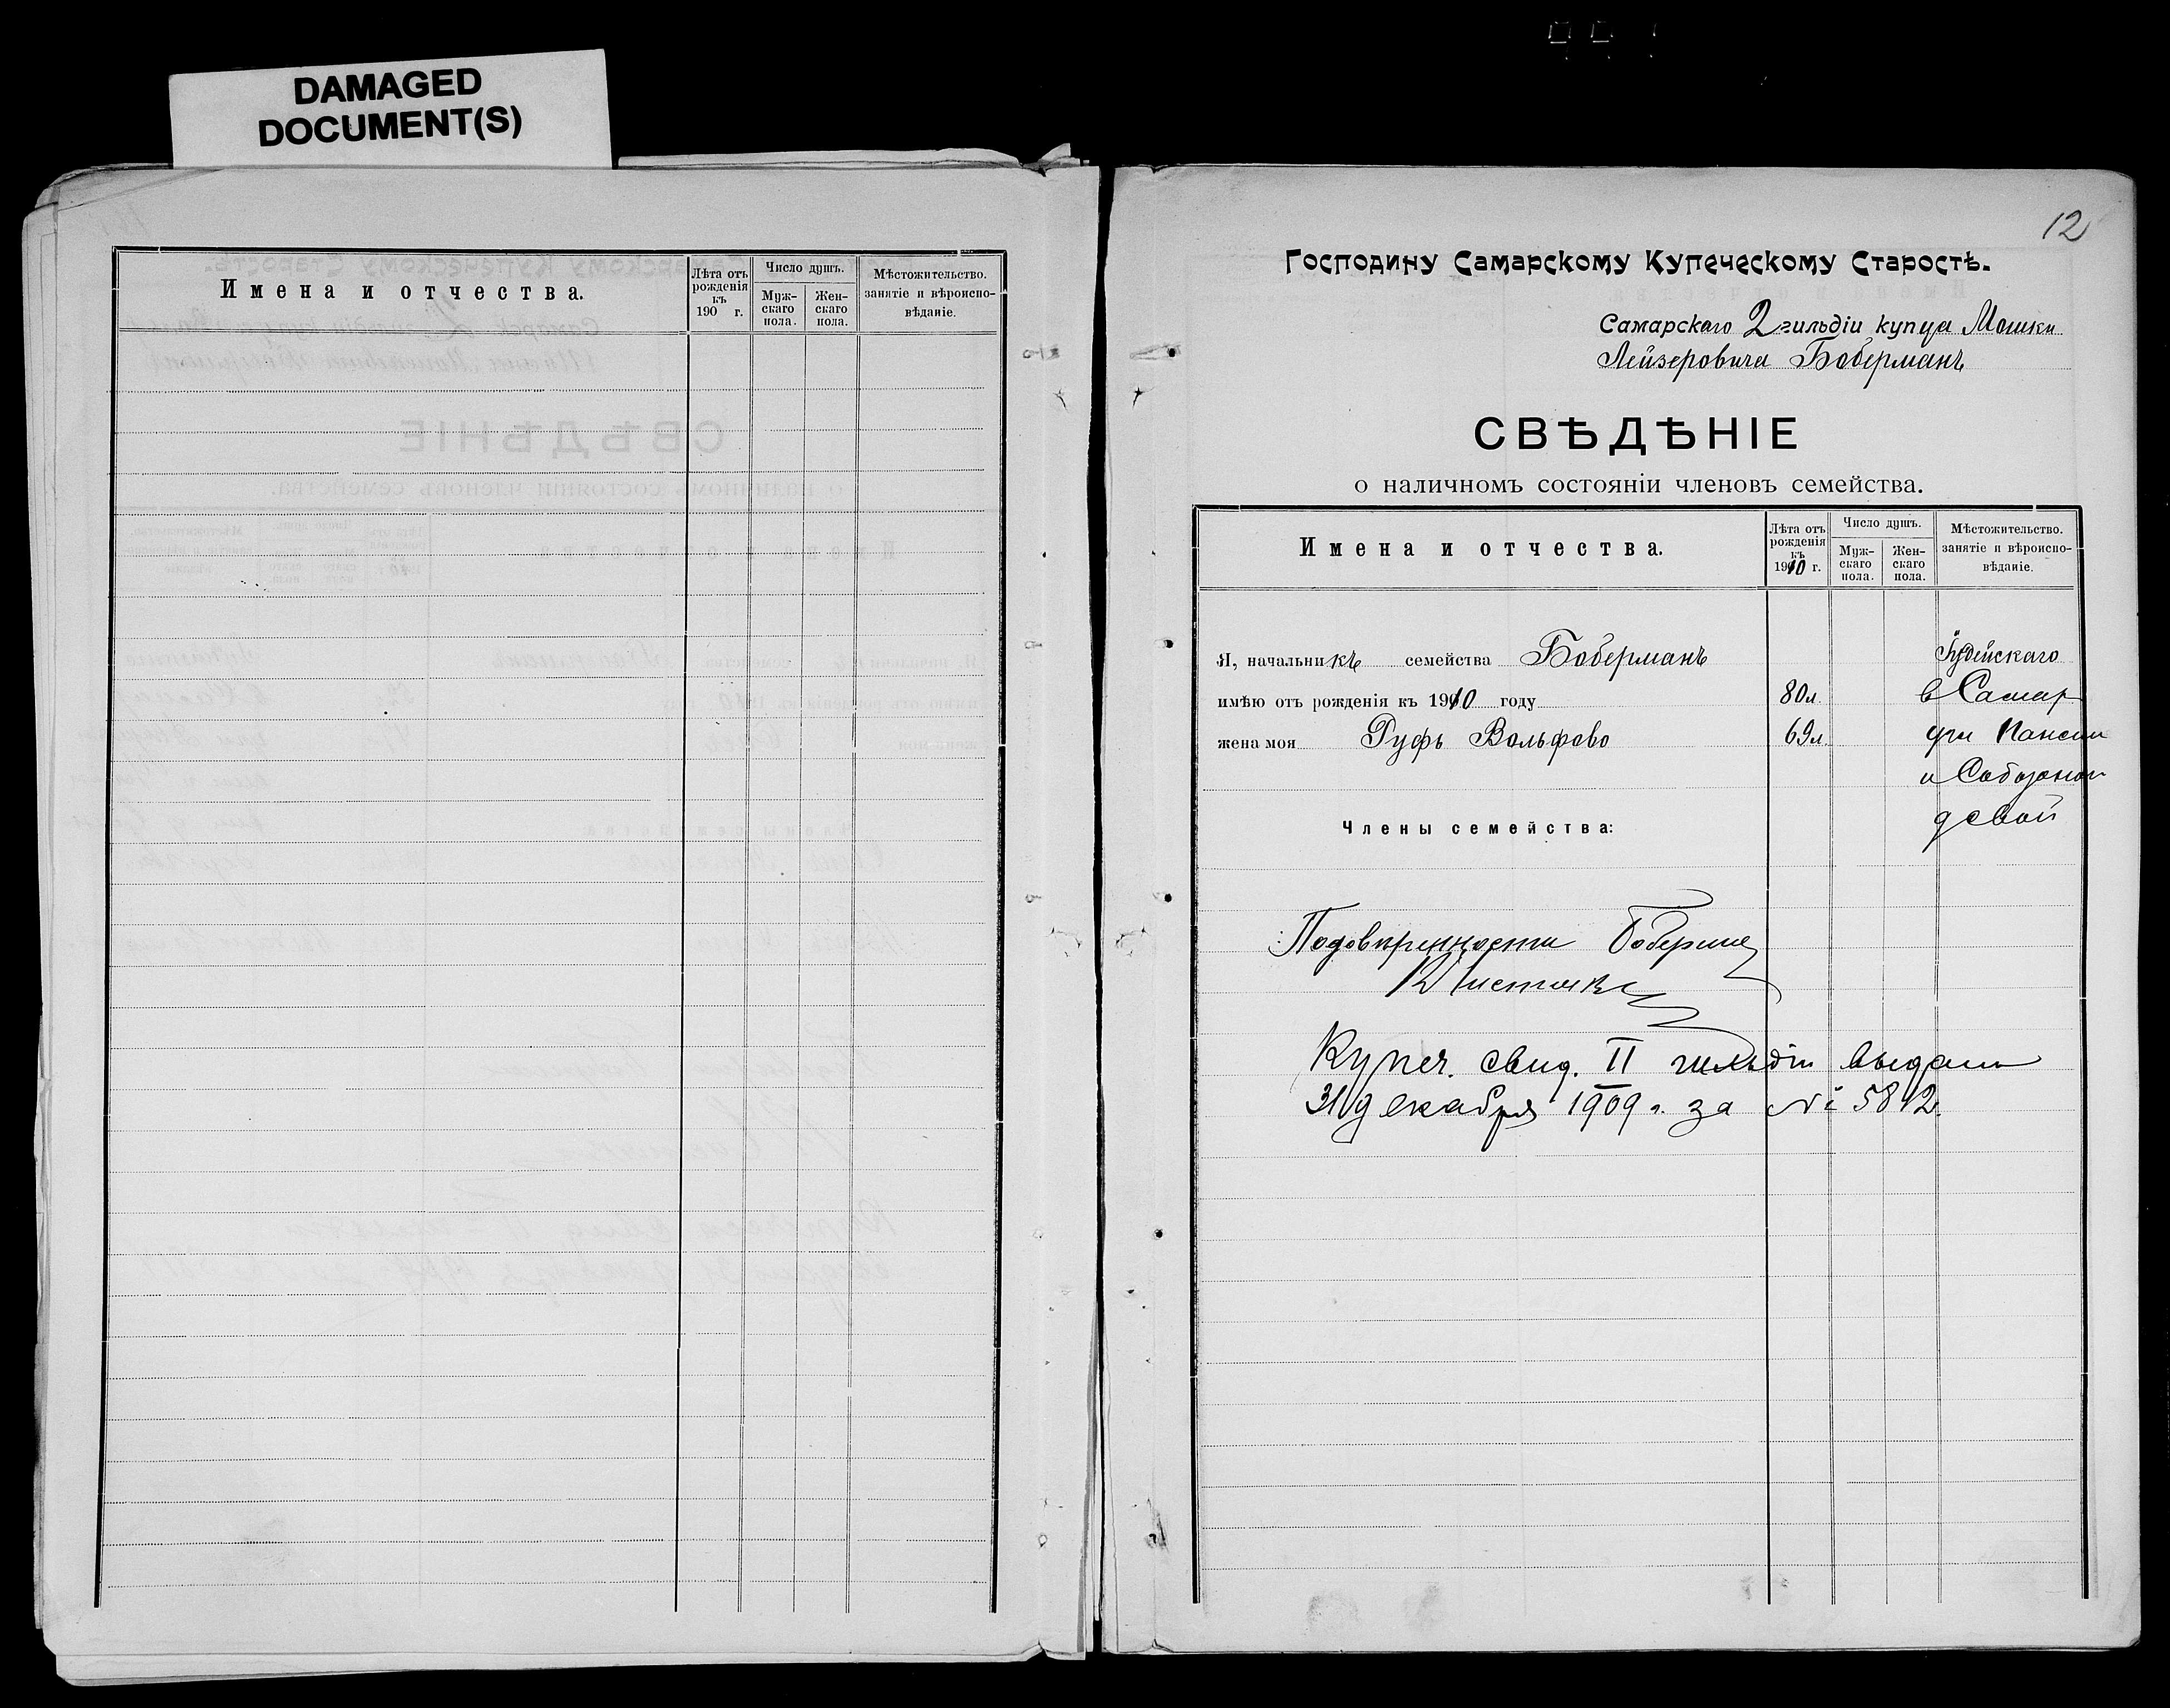 DAMAGED
DOCUMENT(S)
Имена и отчества.
Лѣта отъ рожденія къ 190 г.
Число душъ.
Мужскаго пола.
Женскаго пола.
Мѣстожительство. занятіе и вѣроисповѣданіе.
12
Господину Самарскому Купеческому Старостѣ.
Самарскаго 2 гильдіи купца Мошки
Лейзеровича Боберманъ
СВѢДѢНІЕ
о наличномъ состояніи членовъ семейства.
Имена и отчества.
Лѣта отъ рожденія къ 1910 г.
Число душъ.
Мужскаго пола.
Женскаго пола.
Мѣстожительство. занятіе и вѣроисповѣданіе.
Я, начальникъ семейства Боберманъ Іудейскаго
имѣю отъ рожденія къ 1910 году 80 л. в Самар
жена моя Руфь Вольфово 69 л. угл Панской
и Соборной
д свой
Члены семейства:
Подовѣренности Боберман
Купеч. свид. II гильдіи выдано
31 декабря 1909 г. за № 5812.